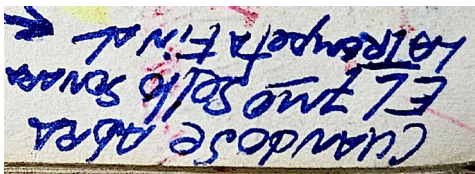 CUANDO SE ABRA
EL 7MO SELLO SONARA
LA TROMPETA FINAL